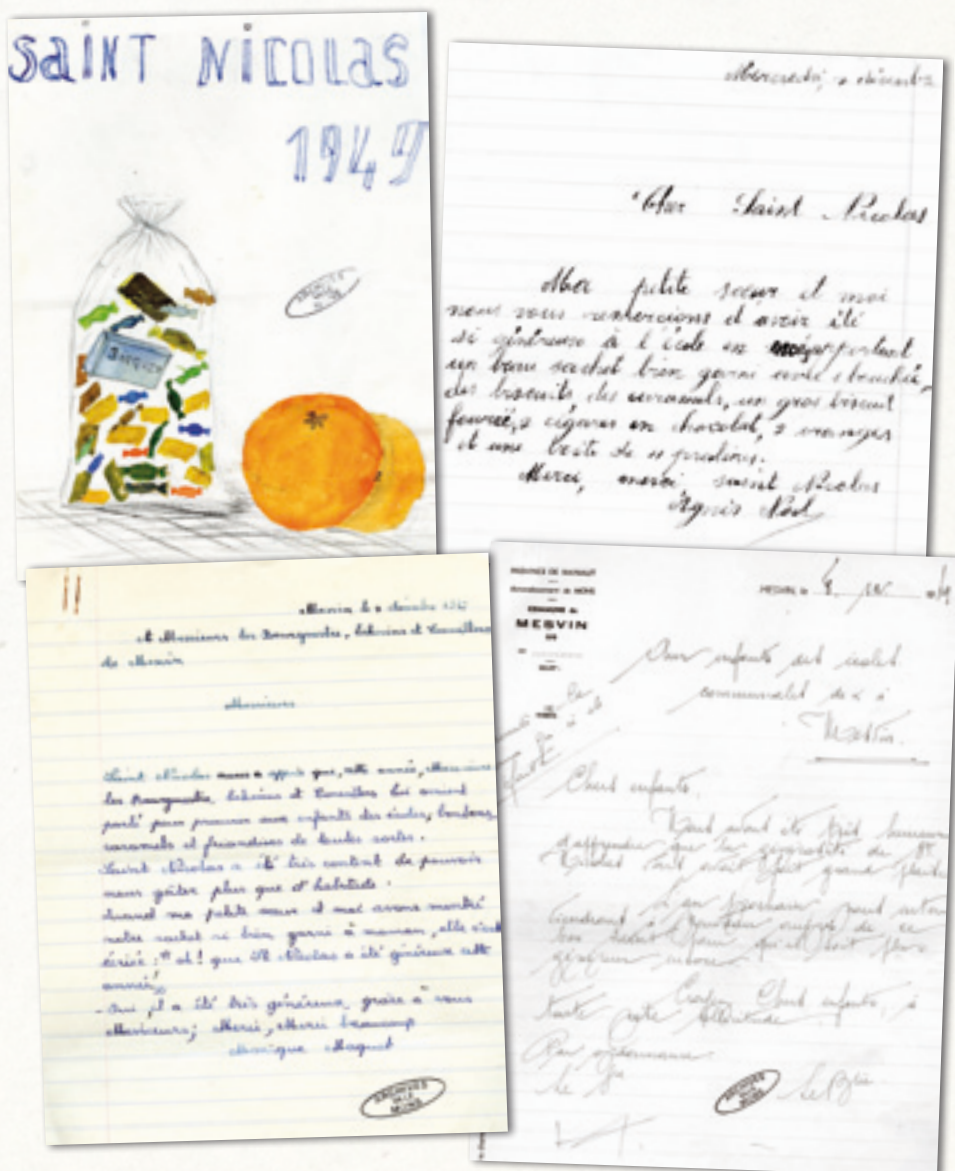 SAINT NICOLAS
1949
Mercredi, décembre
Cher Saint Nicolas
Ma petite soeur et moi
nous vous remercions d'avoir été
si généreux à l'école en apportant
un beau sachet bien garni avec
des biscuits, des caramels, un gros biscuit
fourré, 2 cigares en chocolat, 2 oranges
et une boîte de pralines.
Merci, merci, saint Nicolas
Agnès
Mesvin le décembre
A Messieurs les Bourgmestre, Echevins et Conseillers
de Mesvin
Messieurs
Saint Nicolas nous a appris que, cette année, Messieurs
les Bourgmestre, Echevins et Conseillers lui avaient
parlé pour procurer aux enfants des écoles, bonbons,
caramels et friandises de toutes sortes.
Saint Nicolas a été très content de pouvoir
nous gâter plus que d'habitude.
Quand ma petite soeur et moi avons montré
notre sachet si bien garni à maman, elle s'est
écriée : "oh ! que St Nicolas a été généreux cette
année!
- Oui, il a été très généreux, grâce à vous
Messieurs; Merci, Merci beaucoup
Monique Maquet
ARCHIVES
VILLE
MONS
PROVINCE DE HAINAUT
Arrondissement de MONS
COMMUNE de
MESVIN
MESVIN, le
Aux enfants des écoles
communales de et à
Mesvin.
Chers enfants.
Nous avons été très heureux
d'apprendre que la générosité de St
Nicolas vous avait fait grand plaisir
L'an prochain nous
de ce
bon Saint pour qu'il soit plus
généreux encore.
Croyez, Chers enfants, à
toute notre
Par ordonnance
Le
ARCHIVES
VILLE
MONS